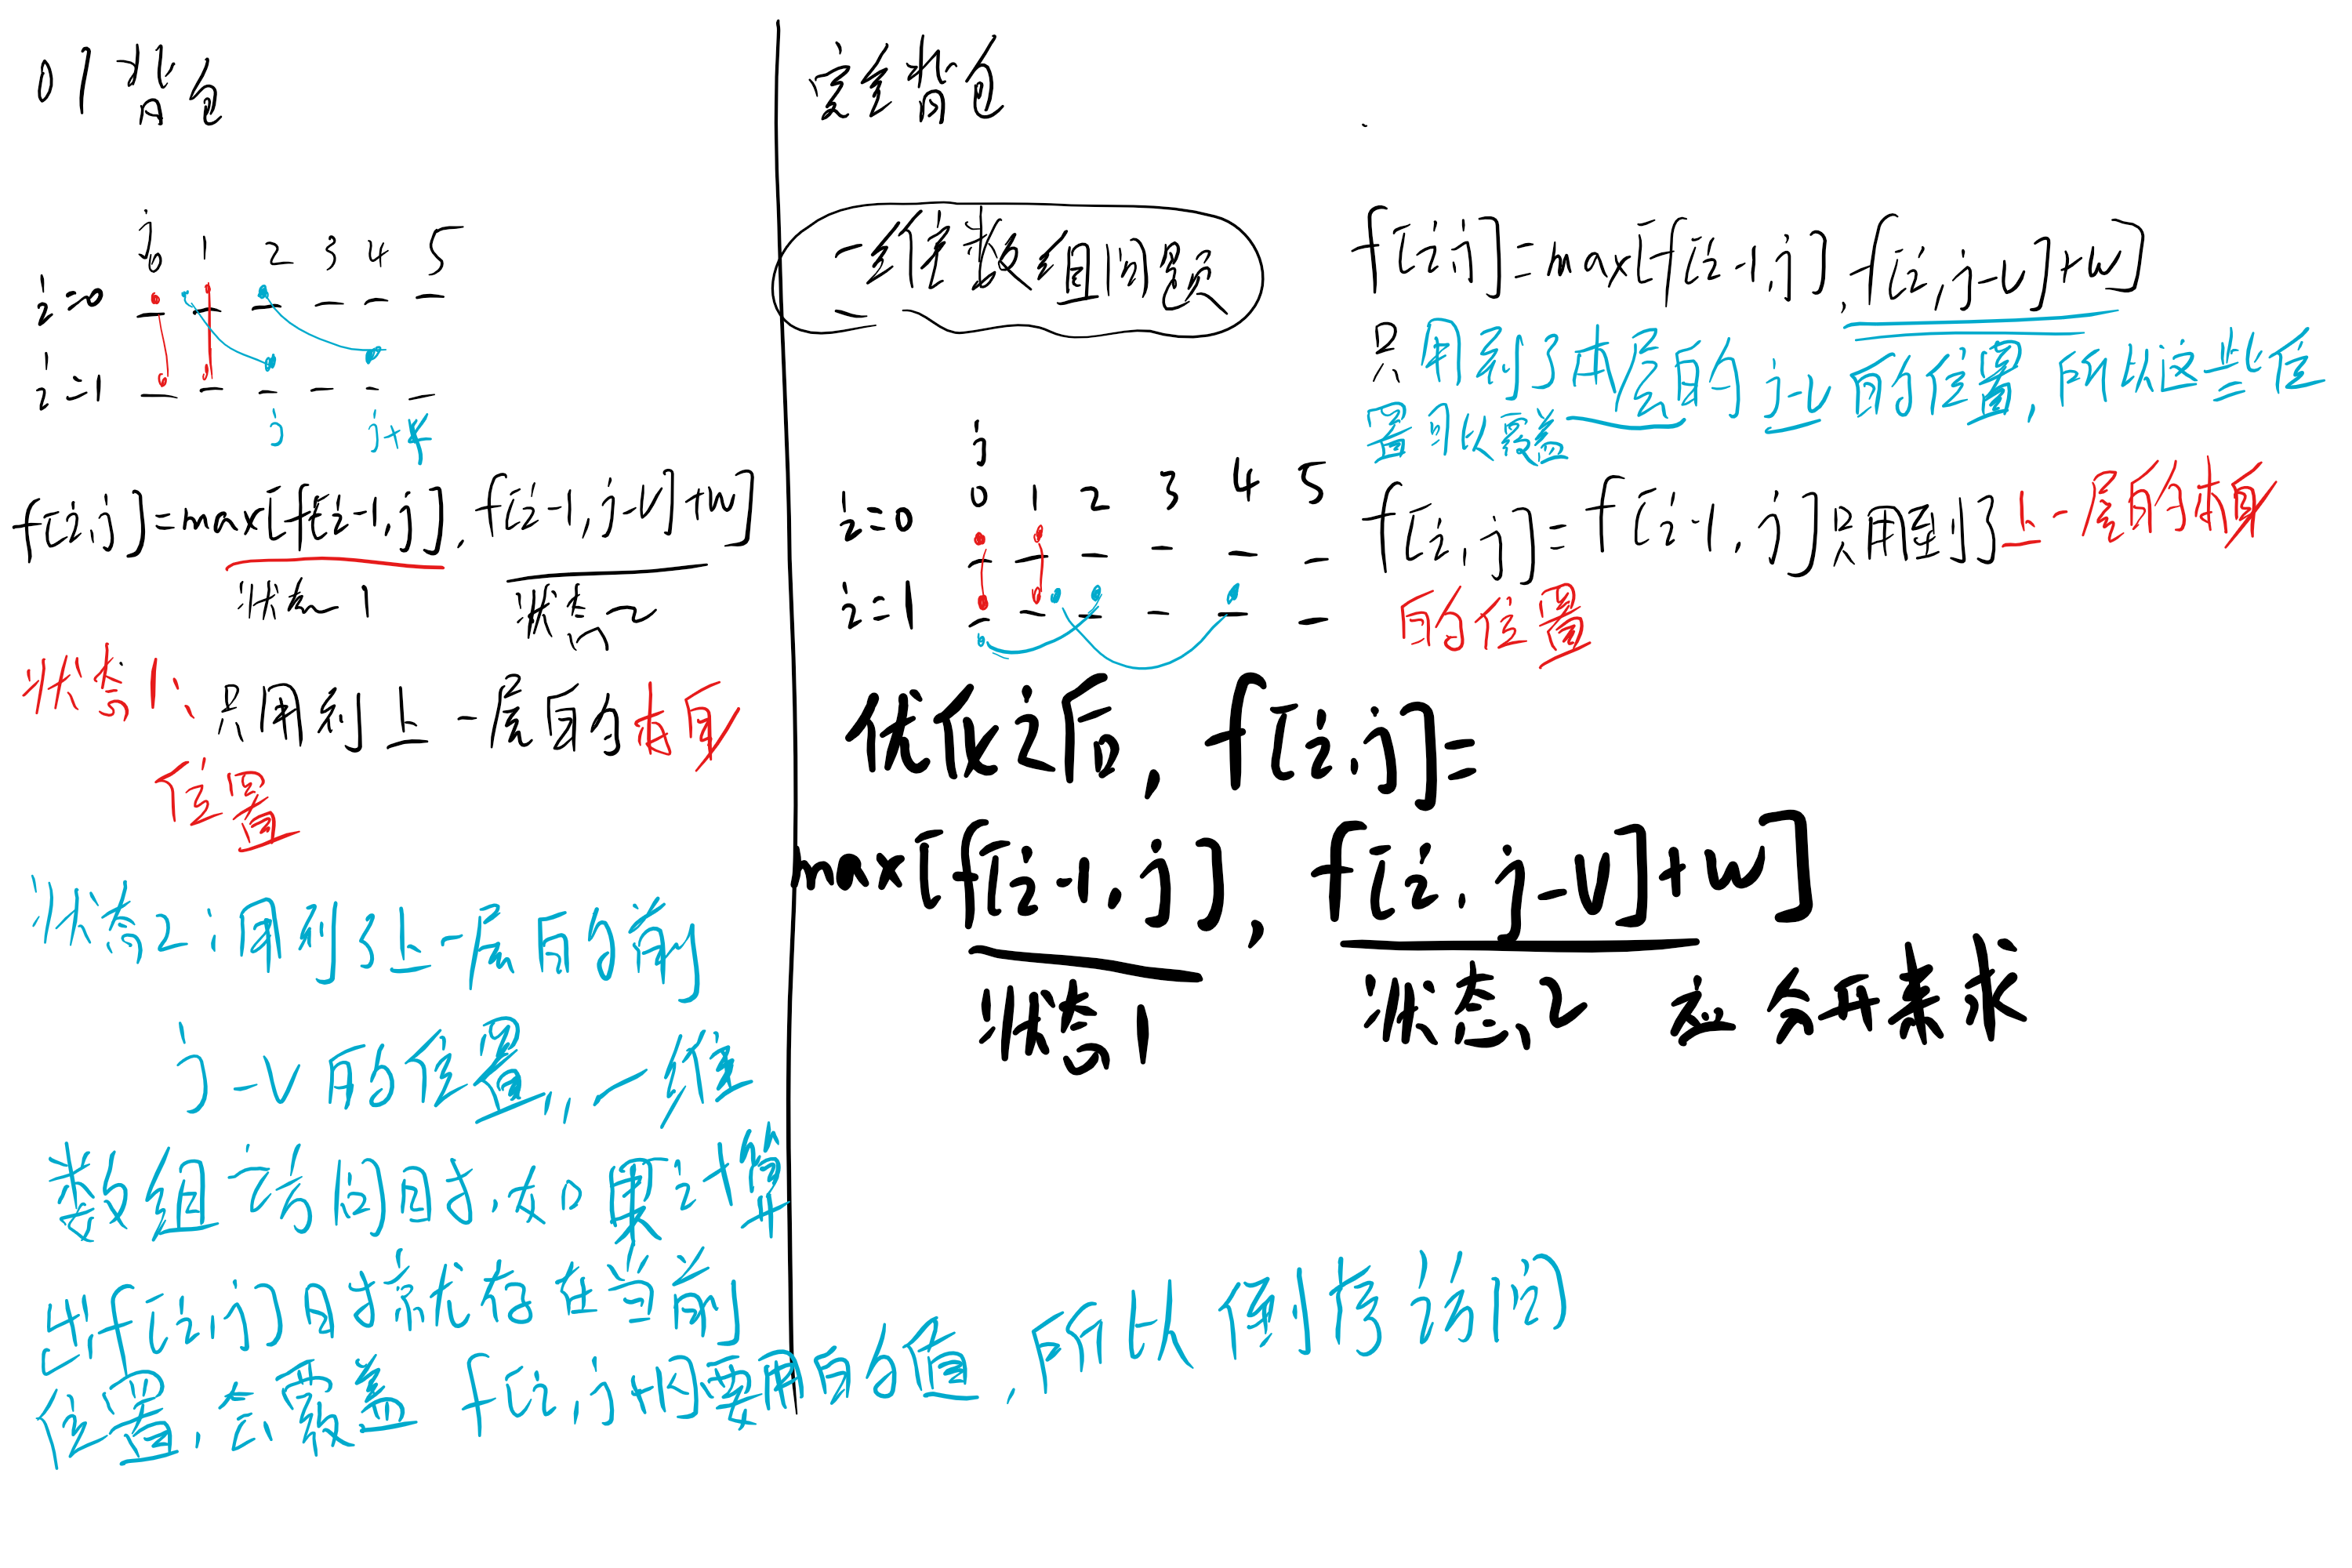 01背包
j
0 1 2 3 4 5
i=0
i=1
j j+v
f[i,j]=max[f[i-1,j],f[i-1,j-v]+w]
状态1 状态2
状态1:只用到上一层的本身
位置
状态2:用到了上一层的前
j-v的位置,,一维
数组访问时,如果计算
出f[i,j]时就优存在当前
位置,会覆盖 f[i,j]将要用的值,所以倒序访问
完全背包
二维数组问题
f[i,j]=max[f[i-1,j],f[i,j-v]+w]
只用到了本层的j-v的位置,所以这些位
置可以覆盖
j
0 1 2 3 4 5
i=0
i=1
f[i,j]=f[i-1,j]只用到了上一层的本身
的位置
优化之后,f[i,j]=
max[f[i-1,j],f[i,j-v]+w]
状态1 状态2 应分开来求